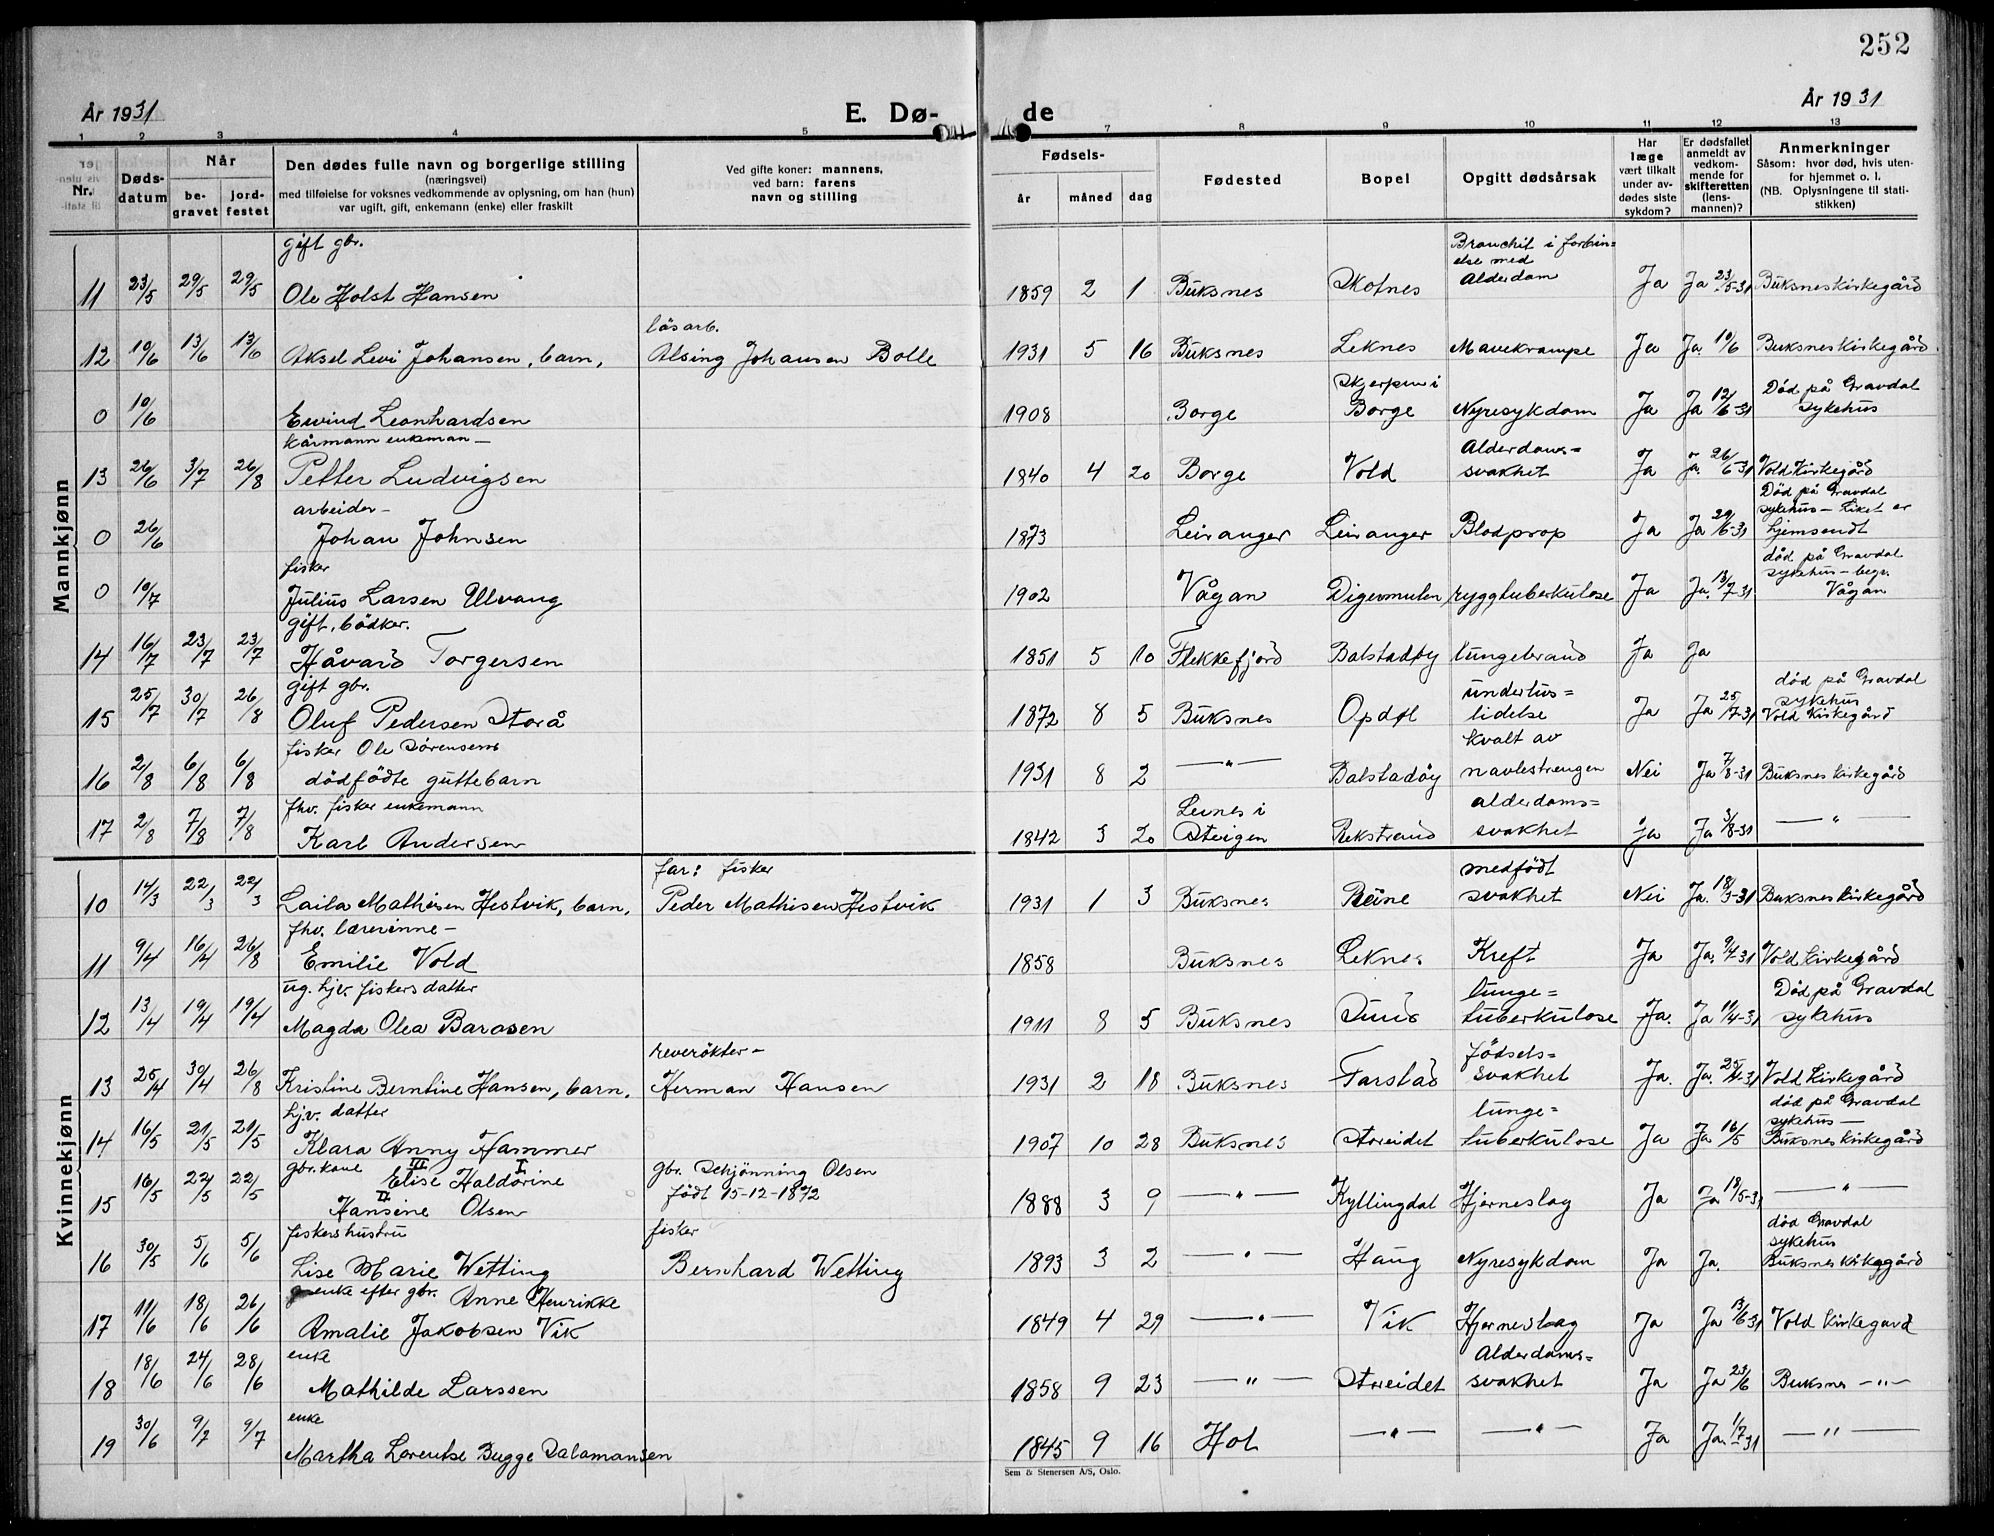 252
År 1931 E. Dø- de År 1931
1 2 3 4 5 7 8 9 10 11 12 13
Nr. Dødsdatum Når begravet jordfestet Den dødes fulle navn og borgerlige stilling (næringsvei) med tilføielse for voksnes vedkommende av oplysning, om han (hun) var ugift, gift, enkemann (enke) eller fraskilt Ved gifte koner: mannens, ved barn: farens navn og stilling Fødsels- år måned dag Fødested Bopel Opgitt dødsårsak Har læge vært tilkalt under avdødes siste sykdom? Er dødsfallet anmeldt av vedkommende for skifteretten (lensmannen)? Anmerkninger Såsom: hvor død, hvis utenfor hjemmet o. l. (NB. Oplysningene til statistikken)
Mannkjønn
11 23/5 29/5 29/5 gift gbr. Ole Holst Hansen 1859 2 1 Buksnes Skotnes Bronchit i forbindelse med Alderdom Ja Ja 23/5-31 Buksnes kirkegård
12 10/6 13/6 13/6 Aksel Levi Johansen, barn, løsarb. Alsing Johansen Bolle 1931 5 16 Buksnes Leknes Mavekrampe Ja Ja. 10/6 Buksnes kirkegård
0 10/6 Eivind Leonhardsen 1908 Borge Skjerpen i Borge Nyresykdom Ja Ja 12/6-31 Død på Gravdal sykehus
13 26/6 3/7 26/8 Kårmann enkeman — Petter Ludvigsen 1840 4 20 Borge Vold Alderdoms= svakhet Ja Ja. 26/6-31 Vold Kirkegård
0 26/6 arbeider — Johan Johnsen 1873 Leiranger Leiranger Blodprop Ja Ja 29/6-31 Død på Gravdal sykehus — Liket er hjemsendt
0 10/7 fisker Julius Larsen Ulvang 1902 Vågan Digermulen ryggtuberkulose Ja Ja. 13/7-31 død på Gravdal sykehus — begr. Vågan
14 16/7 23/7 23/7 gift, bødker. Håvard Torgersen 1851 5 10 Flekkefjord Balstadøy lungebrand Ja Ja
15 25/7 30/7 26/8 gift gbr. Oluf Pedersen Storå 1872 8 5 Buksnes Opdøl underlivs= lidelse Ja Ja 25/7-31 død på Gravdal sykehus Vold Kirkegård
16 2/8 6/8 6/8 fisker Ole Sørensens dødfødte guttebarn 1931 8 2 — " — Balstadøy kvalt av navlestrengen Nei Ja 7/8-31 Buksnes kirkegård
17 2/8 7/8 7/8 fhv. fisker enkemann Karl Andersen 1842 3 20 Leines i Steigen Rekstrand alderdoms= svakhet ja Ja 3/8-31 — " —
Kvinnekjønn
10 14/3 22/3 22/3 Laila Mathisen Hestvik, barn. far: fisker Peder Mathisen Hestvik 1931 1 3 Buksnes Reine medfødt svakhet Nei Ja. 18/3-31 Buksnes kirkegård
11 9/4 16/4 26/8 fhv. lærerinne — Emilie Vold 1858 Buksnes Leknes Kreft Ja Ja. 9/4-31 Vold Kirkegård
12 13/4 19/4 19/4 ug. hjv. fiskers datter Magda Olea Barosen 1911 8 5 Buksnes Sund lunge= tuberkulose Ja. Ja 11/4-31 Død på Gravdal sykehus
13 25/4 30/4 26/8 Kristine Berntine Hansen, barn. reverøkter — Herman Hansen 1931 2 18 Buksnes Farstad fødsels= svakhet Ja. Ja. 25/4-31 Vold Kirkegård
14 16/5 21/5 21/5 hjv. datter Klara Anny Hammer 1907 10 28 Buksnes Storeidet lunge= tuberkulose Ja Ja 16/5 død på Gravdal sykehus — Buksnes kirkegård
15 16/5 22/5 22/5 gbr. kone III Elise I Haldorine II Hansine Olsen gbr. Schjønning Olsen født 15-12-1872 1888 3 9 — " — Kyllingdal Hjerneslag Ja Ja 18/5-31 — " —
16 30/5 5/6 5/6 fiskershustru Lise Marie Wetting fisker Bernhard Wetting 1893 3 2 — " — Haug Nyresykdom Ja Ja. død Gravdal sykehus Buksnes kirkegård
17 11/6 18/6 26/6 enke efter gbr. Anne Henrikke Amalie Jakobsen Vik 1849 4 29 — " — Vik Hjerneslag Ja Ja 13/6 31 Vold Kirkegard
18 18/6 24/6 28/6 enke Mathilde Larssen 1858 9 23 — " — Storeidet Alderdoms= svakhet Ja Ja 23/6 Buksnes — " —
19 30/6 9/7 9/7 enke Martha Lorentse Bugge Salamonsen 1845 9 16 Hol — " — — " — Ja Ja. 1/7-31 — " —
Sem & Stenersen A/S, Oslo.